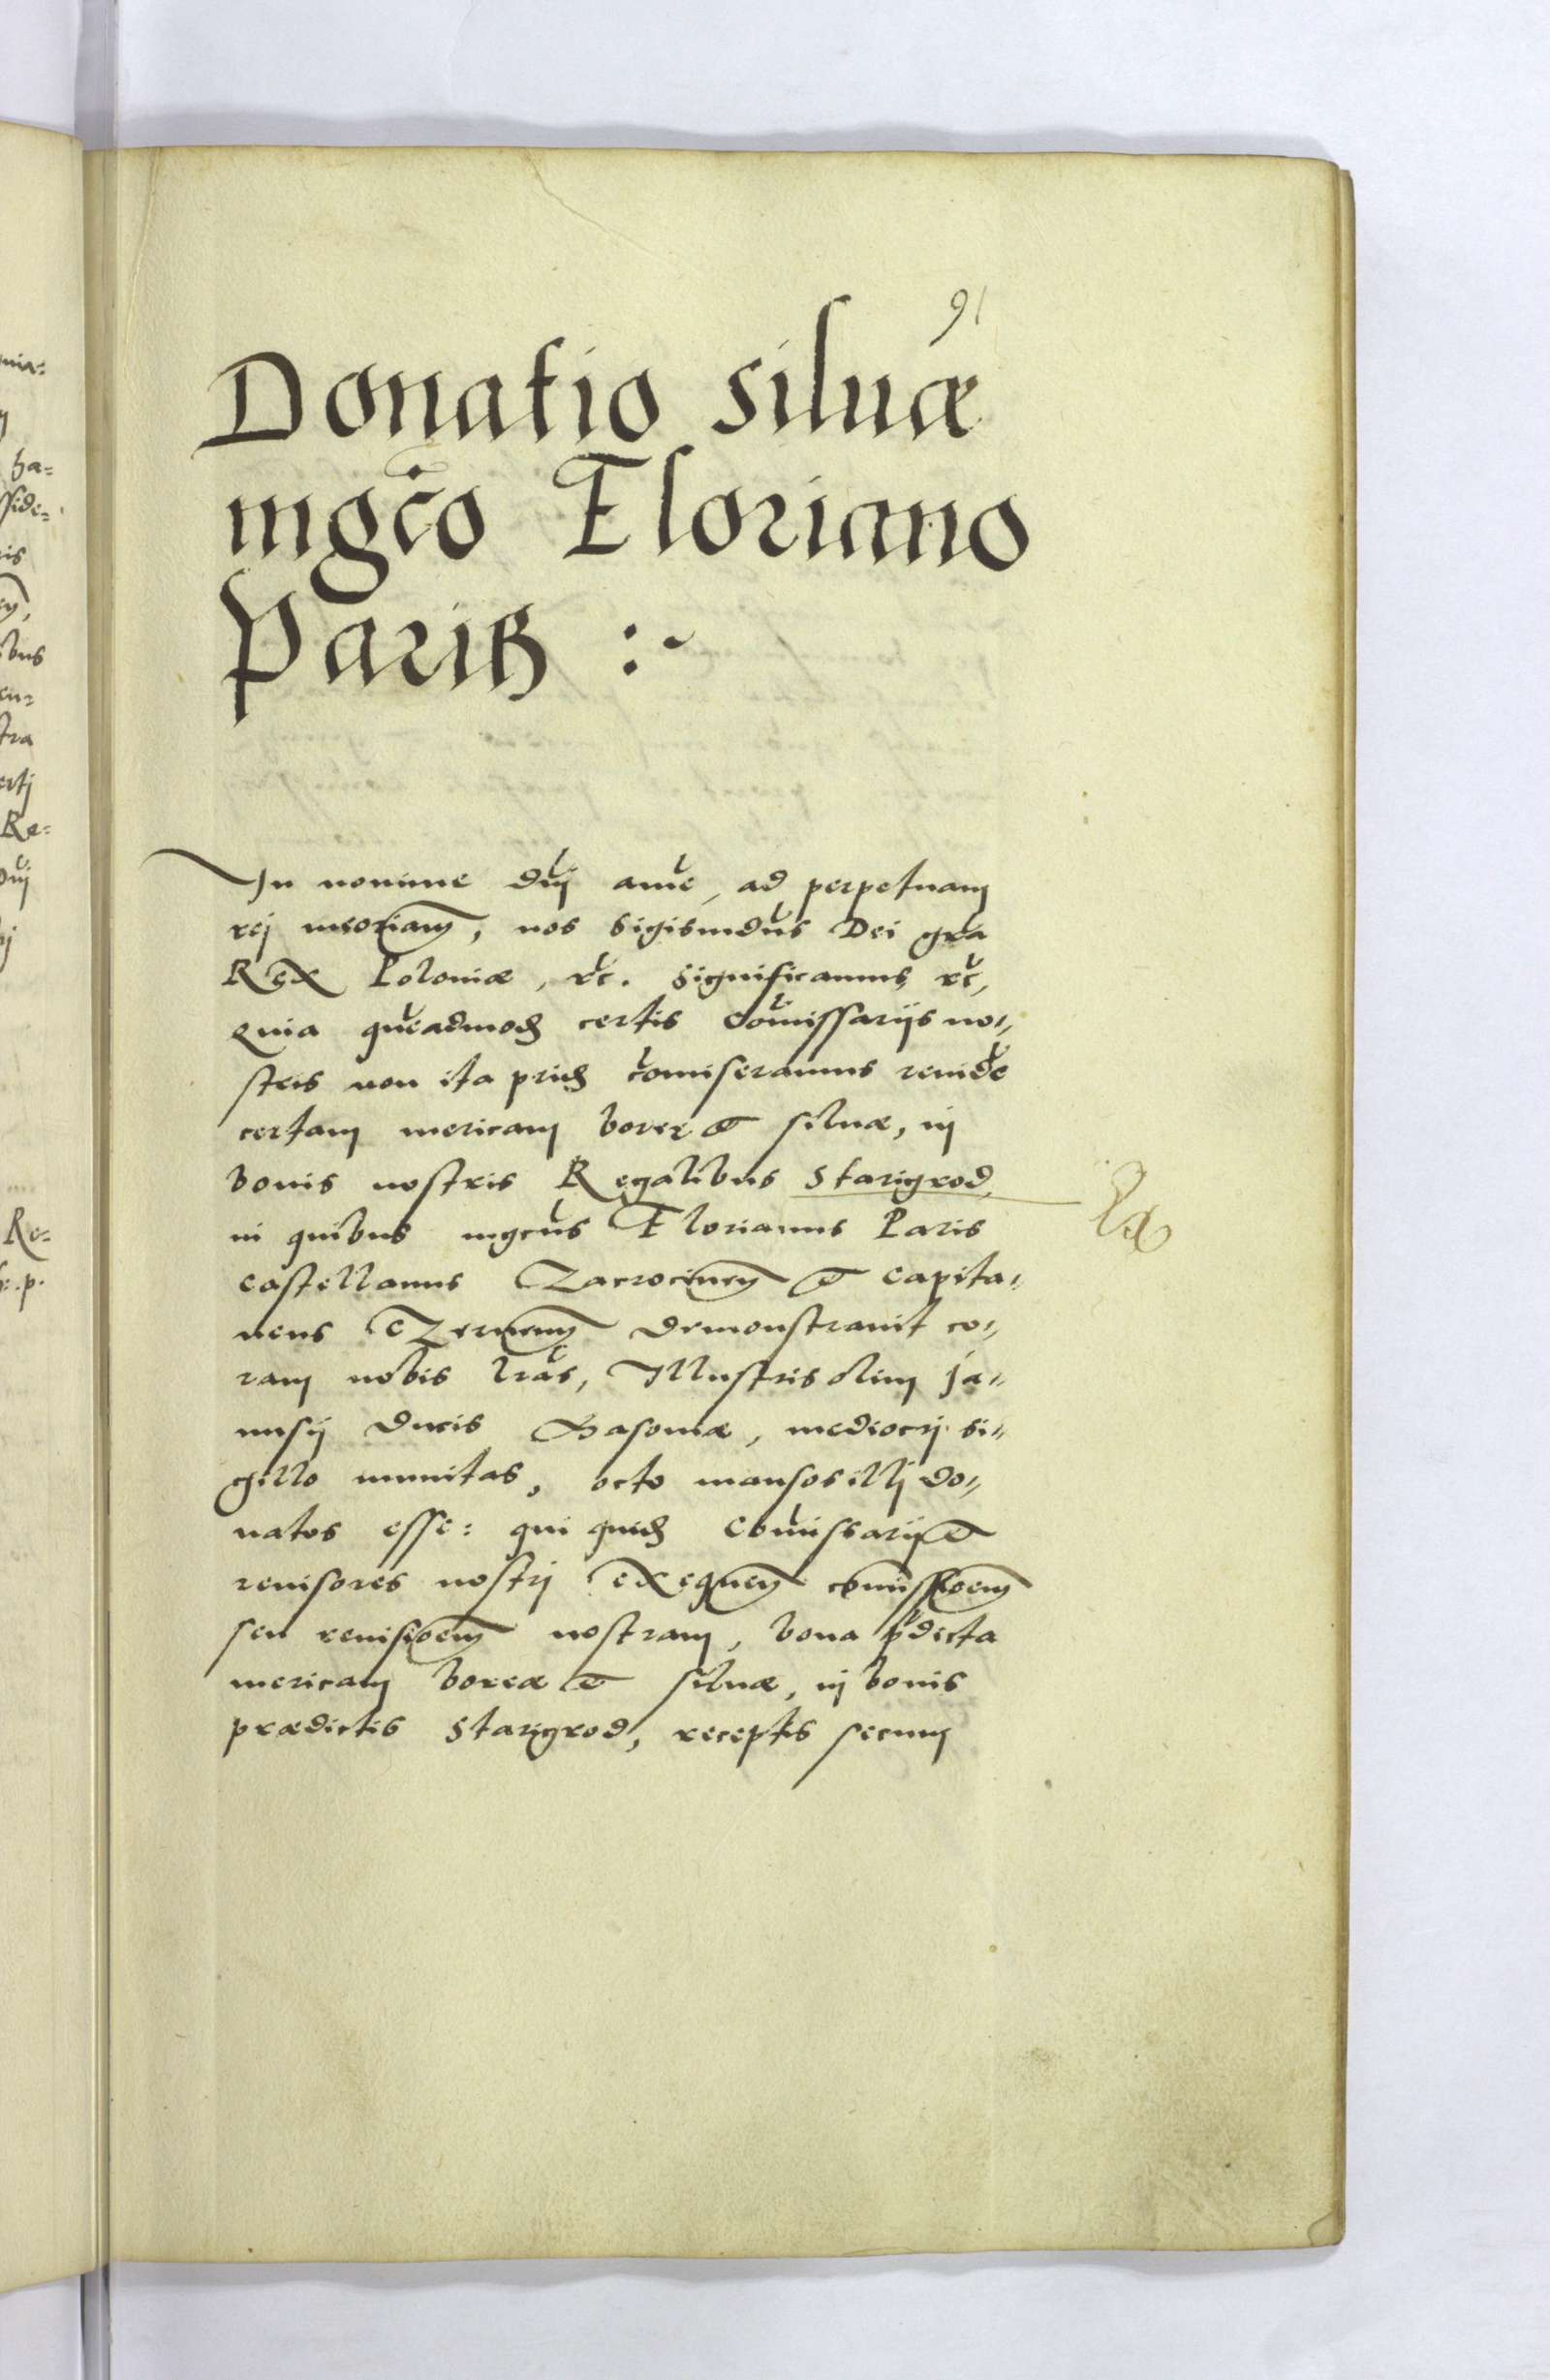 91
Donatio siluæ
mgc̃o Floriano
Pariß :~
In nomine dnĩ amẽ, ad perpetuam
rej meoriam̃, nos Sigismdũs Dei grã
Rex Poloniæ, etc̃. Significamus, etc̃,
Quia quẽadmod certis Com̃issarijs no„
stris non ita prid com̃iseramus reuidẽ
certam mericam boræ et siluæ, in
bonis nostris Regalibus Starigrod,
in quibus mgcũs Florianus Paris
castellanus Zacrocimeñ et capita„
neus Czerneñ demonstrauit co„
ram nobis lrãs, Illustris olim Ja„
nusij ducis Masouiæ, mediocrj si„
gillo munitas, octo mansos illj do„
natos esse: qui quid Com̃issarij et
reuisores nostrj exequeñ com̃issioem̃
seu reuisioem̃ nostram, bona p̃dicta
mericam boreæ et siluæ, in bonis
prædictis Starigrod, receptis secum